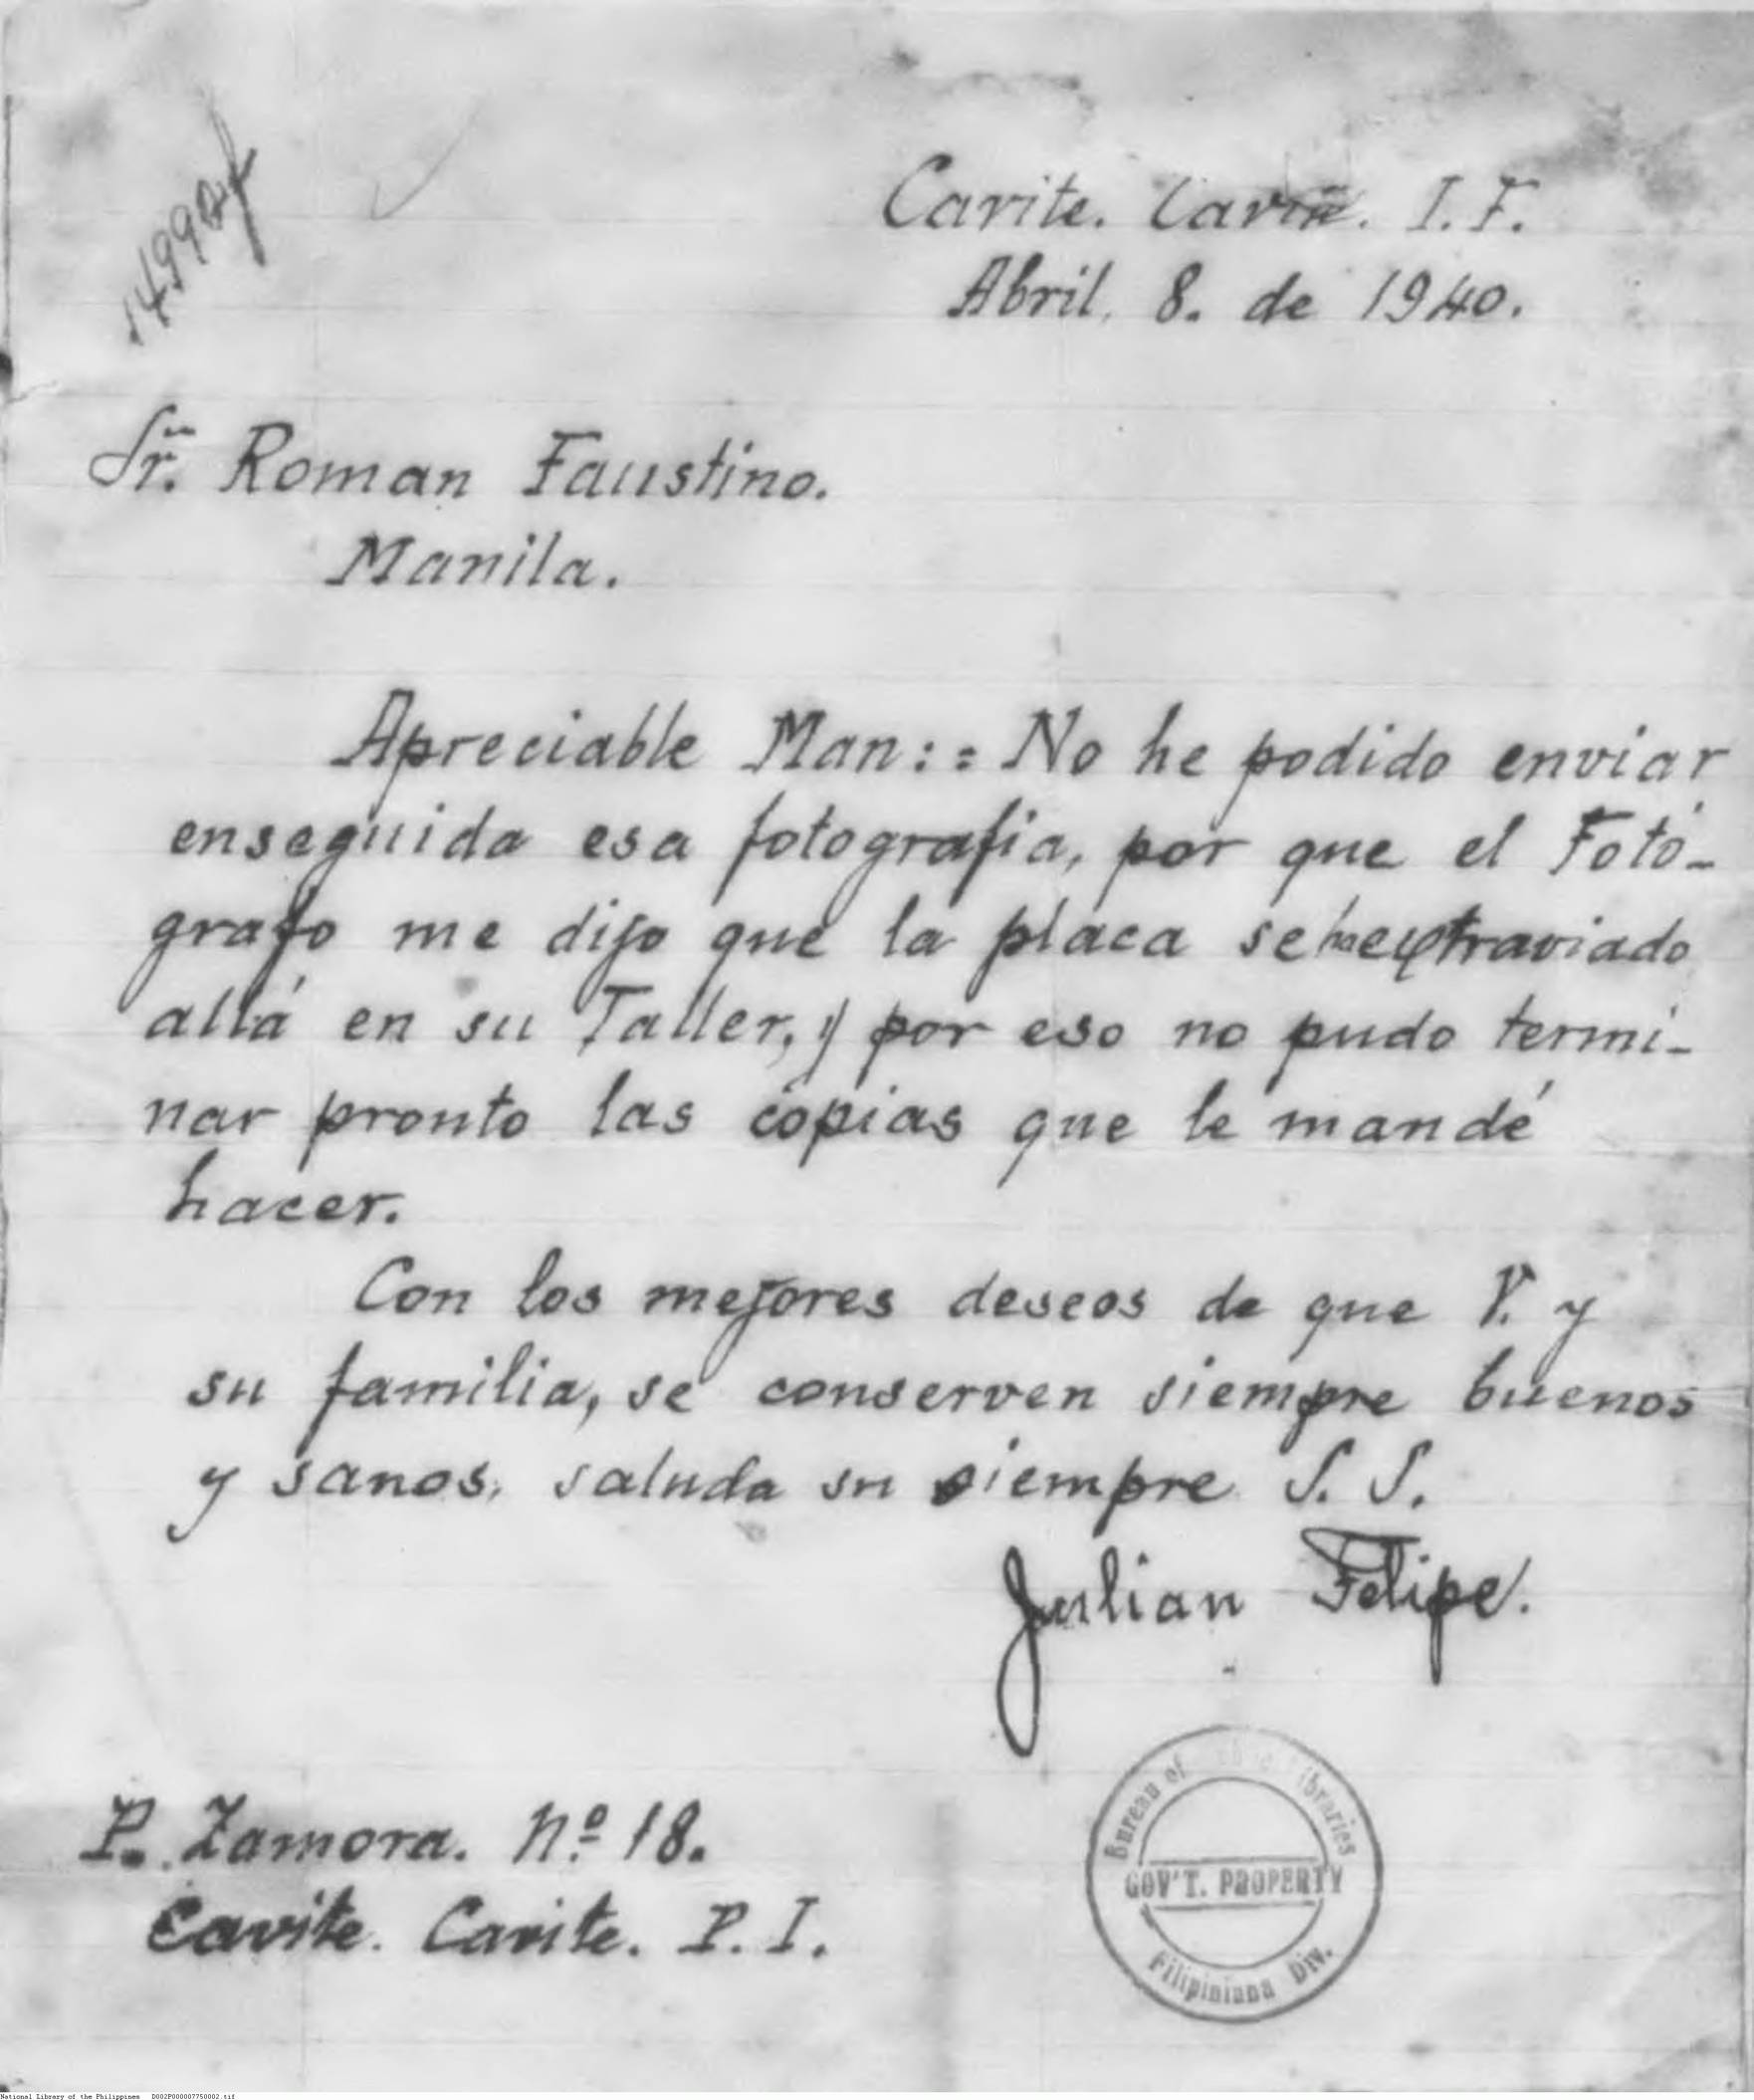 Cavite. Cavite. I. F.
Abril. 8. de 1940.
Sr. Roman Faustino.
Manila.
Apreciable Man: = No he podido enviar
enseguida esa fotografia, por que el Fotó-
grafo me dijo que la placa se ha extraviado
allá en su Taller, y por eso no pudo termi-
nar pronto las copias que le mandé
hacer.
Con los mejores deseos de que V. y
su familia, se conserven siempre buenos
y sanos, saluda su siempre S. S.
Julian Felipe.
P. Zamora. Nº 18.
Cavite. Cavite. P. I.
Bureau of Libraries
GOV'T. PROPERTY
Filipiniana Div.
National Library of the Philippines D002P000007750002.tif